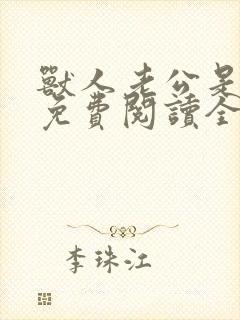 獸人老公是
免費閱讀全
李珠江